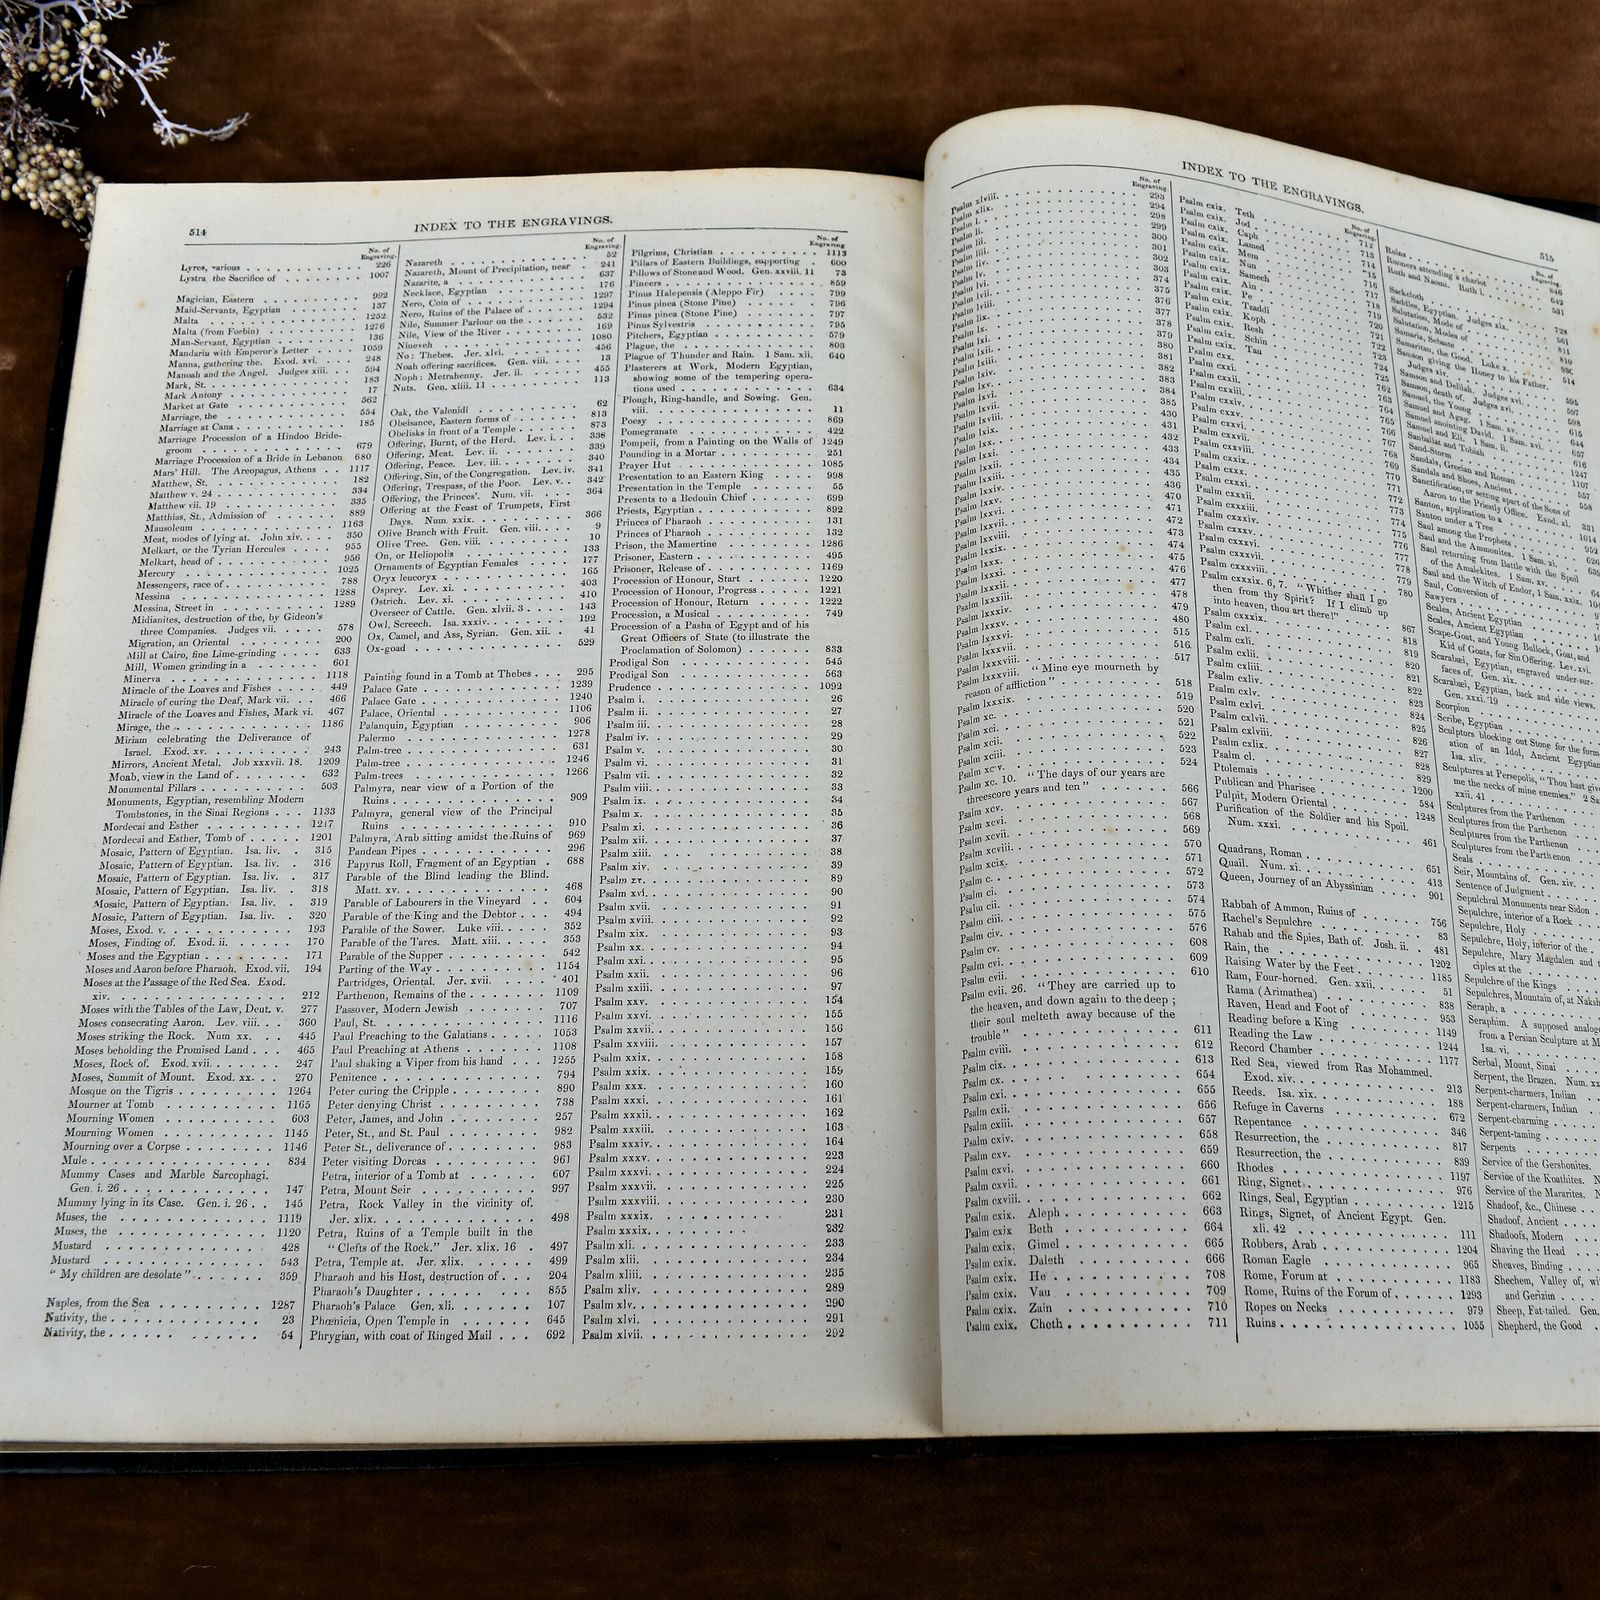 514
INDEX TO THE ENGRAVINGS.
No. of
Engraving.
Lyres, various . . . 226
Lystra the Sacrifice of . . . 1007
Magician, Eastern . . . 992
Maid-Servants, Egyptian . . . 137
Malta . . . 1252
Malta (from Forbin) . . . 1276
Man-Servant, Egyptian . . . 136
Mandarin with Emperor's Letter . . . 1059
Manna, gathering the. Exod. xvi. . . . 248
Manoah and the Angel. Judges xiii. . . . 594
Mark, St. . . . 183
Mark Antony . . . 17
Market at Gate . . . 562
Marriage, the . . . 554
Marriage at Cana . . . 185
Marriage Procession of a Hindoo Bride-
groom . . . 679
Marriage Procession of a Bride in Lebanon 680
Mars' Hill. The Areopagus, Athens . . 1117
Matthew, St. . . . 182
Matthew v. 24 . . . 334
Matthew vii. 19 . . . 335
Matthias, St., Admission of . . . 889
Mausoleum . . . 1163
Meat, modes of lying at. John xiv. . . . 350
Melkart, or the Tyrian Hercules . . . 955
Melkart, head of . . . 956
Mercury . . . 1025
Messengers, race of . . . 788
Messina . . . 1288
Messina, Street in . . . 1289
Midianites, destruction of the, by Gideon's
three Companies. Judges vii. . . . 578
Migration, an Oriental . . . 200
Mill at Cairo, fine Lime-grinding . . . 633
Mill, Women grinding in a . . . 601
Minerva . . . 1118
Miracle of the Loaves and Fishes . . . 449
Miracle of curing the Deaf, Mark vii. . . 466
Miracle of the Loaves and Fishes, Mark vi. 467
Mirage, the . . . 1186
Miriam celebrating the Deliverance of
Israel. Exod. xv. . . . 243
Mirrors, Ancient Metal. Job xxxvii. 18. 1209
Moab, view in the Land of . . . 632
Monumental Pillars . . . 503
Monuments, Egyptian, resembling Modern
Tombstones, in the Sinai Regions . . 1133
Mordecai and Esther . . . 1217
Mordecai and Esther, Tomb of . . . 1201
Mosaic, Pattern of Egyptian. Isa. liv. . 315
Mosaic, Pattern of Egyptian. Isa. liv. . 316
Mosaic, Pattern of Egyptian. Isa. liv. . 317
Mosaic, Pattern of Egyptian. Isa. liv. . 318
Mosaic, Pattern of Egyptian. Isa. liv. . 319
Mosaic, Pattern of Egyptian. Isa. liv. . 320
Moses, Exod. v. . . . 193
Moses, Finding of. Exod. ii. . . . 170
Moses and the Egyptian . . . 171
Moses and Aaron before Pharaoh. Exod. vii. 194
Moses at the Passage of the Red Sea. Exod.
xiv. . . . 212
Moses with the Tables of the Law, Deut. v. 277
Moses consecrating Aaron. Lev. viii. . . 360
Moses striking the Rock. Num xx. . . 445
Moses beholding the Promised Land . . 465
Moses, Rock of. Exod. xvii. . . . 247
Moses, Summit of Mount. Exod. xx. . . 270
Mosque on the Tigris . . . 1264
Mourner at Tomb . . . 1165
Mourning Women . . . 603
Mourning Women . . . 1145
Mourning over a Corpse . . . 1146
Mule . . . 834
Mummy Cases and Marble Sarcophagi.
Gen. i. 26 . . . 147
Mummy lying in its Case. Gen. i. 26 . . 145
Muses, the . . . 1119
Muses, the . . . 1120
Mustard . . . 428
Mustard . . . 543
"My children are desolate" . . . 359
Naples, from the Sea . . . 1287
Nativity, the . . . 23
Nativity, the . . . 54
No. of
Engraving.
Nazareth . . . 52
Nazareth, Mount of Precipitation, near . 241
Nazarite, a . . . 637
Necklace, Egyptian . . . 176
Nero, Coin of . . . 1297
Nero, Ruins of the Palace of . . . 1294
Nile, Summer Parlour on the . . . 532
Nile, View of the River . . . 169
Nineveh . . . 1080
No: Thebes. Jer. xlvi. . . . 456
Noah offering sacrifices. Gen. viii. . . 13
Noph: Metrahenny. Jer. ii. . . . 455
Nuts. Gen. xliii. 11 . . . 113
Oak, the Valonidi . . . 62
Obeisance, Eastern forms of . . . 813
Obelisks in front of a Temple . . . 873
Offering, Burnt, of the Herd. Lev. i. . . 338
Offering, Meat. Lev. ii. . . . 339
Offering, Peace. Lev. iii. . . . 340
Offering, Sin, of the Congregation. Lev. iv. 341
Offering, Trespass, of the Poor. Lev. v. . 342
Offering, the Princes'. Num. vii. . . . 364
Offering at the Feast of Trumpets, First
Days. Num. xxix. . . . 366
Olive Branch with Fruit. Gen. viii. . . 9
Olive Tree. Gen. viii. . . . 10
On, or Heliopolis . . . 133
Ornaments of Egyptian Females . . . 177
Oryx leucoryx . . . 165
Osprey. Lev. xi. . . . 403
Ostrich. Lev. xi. . . . 410
Overseer of Cattle. Gen. xlvii. 3 . . . 143
Owl, Screech. Isa. xxxiv. . . . 192
Ox, Camel, and Ass, Syrian. Gen. xii. . 41
Ox-goad . . . 529
Painting found in a Tomb at Thebes . . 295
Palace Gate . . . 1239
Palace Gate . . . 1240
Palace, Oriental . . . 1106
Palanquin, Egyptian . . . 906
Palermo . . . 1278
Palm-tree . . . 631
Palm-tree . . . 1246
Palm-trees . . . 1266
Palmyra, near view of a Portion of the
Ruins . . . 909
Palmyra, general view of the Principal
Ruins . . . 910
Palmyra, Arab sitting amidst the Ruins of 969
Pandean Pipes . . . 296
Papyrus Roll, Fragment of an Egyptian . 688
Parable of the Blind leading the Blind.
Matt. xv. . . . 468
Parable of Labourers in the Vineyard . . 604
Parable of the King and the Debtor . . 494
Parable of the Sower. Luke viii. . . . 352
Parable of the Tares. Matt. xiii. . . . 353
Parable of the Supper . . . 542
Parting of the Way . . . 1154
Partridges, Oriental. Jer. xvii. . . . 401
Parthenon, Remains of the . . . 1109
Passover, Modern Jewish . . . 707
Paul, St. . . . 1116
Paul Preaching to the Galatians . . . 1053
Paul Preaching at Athens . . . 1108
Paul shaking a Viper from his hand . . 1255
Penitence . . . 794
Peter curing the Cripple . . . 890
Peter denying Christ . . . 738
Peter, James, and John . . . 257
Peter, St., and St. Paul . . . 982
Peter St., deliverance of . . . 983
Peter visiting Dorcas . . . 961
Petra, interior of a Tomb at . . . 607
Petra, Mount Seir . . . 997
Petra, Rock Valley in the vicinity of.
Jer. xlix. . . . 498
Petra, Ruins of a Temple built in the
"Clefts of the Rock." Jer. xlix. 16 . 497
Petra, Temple at. Jer. xlix. . . . 499
Pharaoh and his Host, destruction of . . 204
Pharaoh's Daughter . . . 855
Pharaoh's Palace Gen. xli. . . . 107
Phœnicia, Open Temple in . . . 645
Phrygian, with coat of Ringed Mail . . 692
No. of
Engraving
Pilgrims, Christian . . . 1113
Pillars of Eastern Buildings, supporting . 600
Pillows of Stone and Wood. Gen. xxviii. 11 73
Pincers . . . 859
Pinus Halepensis (Aleppo Fir) . . . 799
Pinus pinea (Stone Pine) . . . 796
Pinus pinea (Stone Pine) . . . 797
Pinus Sylvestris . . . 795
Pitchers, Egyptian . . . 579
Plague, the . . . 803
Plague of Thunder and Rain. 1 Sam. xii. 640
Plasterers at Work, Modern Egyptian,
showing some of the tempering opera-
tions used . . . 634
Plough, Ring-handle, and Sowing. Gen.
viii. . . . 11
Poesy . . . 869
Pomegranate . . . 422
Pompeii, from a Painting on the Walls of 1249
Pounding in a Mortar . . . 251
Prayer Hut . . . 1085
Presentation to an Eastern King . . . 998
Presentation in the Temple . . . 55
Presents to a Bedouin Chief . . . 699
Priests, Egyptian . . . 892
Princes of Pharaoh . . . 131
Princes of Pharaoh . . . 132
Prison, the Mamertine . . . 1286
Prisoner, Eastern . . . 495
Prisoner, Release of . . . 1169
Procession of Honour, Start . . . 1220
Procession of Honour, Progress . . . 1221
Procession of Honour, Return . . . 1222
Procession, a Musical . . . 749
Procession of a Pasha of Egypt and of his
Great Officers of State (to illustrate the
Proclamation of Solomon) . . . 833
Prodigal Son . . . 545
Prodigal Son . . . 563
Prudence . . . 1092
Psalm i. . . . 26
Psalm ii. . . . 27
Psalm iii. . . . 28
Psalm iv. . . . 29
Psalm v. . . . 30
Psalm vi. . . . 31
Psalm vii. . . . 32
Psalm viii. . . . 33
Psalm ix. . . . 34
Psalm x. . . . 35
Psalm xi. . . . 36
Psalm xii. . . . 37
Psalm xiii. . . . 38
Psalm xiv. . . . 39
Psalm xv. . . . 89
Psalm xvi. . . . 90
Psalm xvii. . . . 91
Psalm xviii. . . . 92
Psalm xix. . . . 93
Psalm xx. . . . 94
Psalm xxi. . . . 95
Psalm xxii. . . . 96
Psalm xxiii. . . . 97
Psalm xxv. . . . 154
Psalm xxvi. . . . 155
Psalm xxvii. . . . 156
Psalm xxviii. . . . 157
Psalm xxix. . . . 158
Psalm xxix. . . . 159
Psalm xxx. . . . 160
Psalm xxxi. . . . 161
Psalm xxxii. . . . 162
Psalm xxxiii. . . . 163
Psalm xxxiv. . . . 164
Psalm xxxv. . . . 223
Psalm xxxvi. . . . 224
Psalm xxxvii. . . . 225
Psalm xxxviii. . . . 230
Psalm xxxix. . . . 231
Psalm xxxix. . . . 232
Psalm xli. . . . 233
Psalm xlii. . . . 234
Psalm xliii. . . . 235
Psalm xliv. . . . 289
Psalm xlv. . . . 290
Psalm xlvi. . . . 291
Psalm xlvii. . . . 292
INDEX TO THE ENGRAVINGS.
515
No. of
Engraving.
Psalm xlviii. . . . 293
Psalm xlix. . . . 294
Psalm l. . . . 298
Psalm li. . . . 299
Psalm lii. . . . 300
Psalm liii. . . . 301
Psalm liv. . . . 302
Psalm lv. . . . 303
Psalm lvi. . . . 374
Psalm lvii. . . . 375
Psalm lviii. . . . 376
Psalm lix. . . . 377
Psalm lx. . . . 378
Psalm lxi. . . . 379
Psalm lxii. . . . 380
Psalm lxiii. . . . 381
Psalm lxiv. . . . 382
Psalm lxv. . . . 383
Psalm lxvi. . . . 384
Psalm lxvii. . . . 385
Psalm lxviii. . . . 430
Psalm lxix. . . . 431
Psalm lxx. . . . 432
Psalm lxxi. . . . 433
Psalm lxxii. . . . 434
Psalm lxxiii. . . . 435
Psalm lxxiv. . . . 436
Psalm lxxv. . . . 470
Psalm lxxvi. . . . 471
Psalm lxxvii. . . . 472
Psalm lxxviii. . . . 473
Psalm lxxix. . . . 474
Psalm lxxx. . . . 475
Psalm lxxxi. . . . 476
Psalm lxxxii. . . . 477
Psalm lxxxiii. . . . 478
Psalm lxxxiv. . . . 479
Psalm lxxxv. . . . 480
Psalm lxxxvi. . . . 515
Psalm lxxxvii. . . . 516
Psalm lxxxviii. . . . 517
Psalm lxxxviii. "Mine eye mourneth by
reason of affliction" . . . 518
Psalm lxxxix. . . . 519
Psalm xc. . . . 520
Psalm xci. . . . 521
Psalm xcii. . . . 522
Psalm xciii. . . . 523
Psalm xciv. . . . 524
Psalm xc. 10. "The days of our years are
threescore years and ten" . . . 566
Psalm xcv. . . . 567
Psalm xcvi. . . . 568
Psalm xcvii. . . . 569
Psalm xcviii. . . . 570
Psalm xcix. . . . 571
Psalm c. . . . 572
Psalm ci. . . . 573
Psalm cii. . . . 574
Psalm ciii. . . . 575
Psalm civ. . . . 576
Psalm cv. . . . 608
Psalm cvi. . . . 609
Psalm cvii. . . . 610
Psalm cvii. 26. "They are carried up to
the heaven, and down again to the deep;
their soul melteth away because of the
trouble" . . . 611
Psalm cviii. . . . 612
Psalm cix. . . . 613
Psalm cx. . . . 654
Psalm cxi. . . . 655
Psalm cxii. . . . 656
Psalm cxiii. . . . 657
Psalm cxiv. . . . 658
Psalm cxv. . . . 659
Psalm cxvi. . . . 660
Psalm cxvii. . . . 661
Psalm cxviii. . . . 662
Psalm cxix. Aleph . . . 663
Psalm cxix Beth . . . 664
Psalm cxix. Gimel . . . 665
Psalm cxix. Daleth . . . 666
Psalm cxix. He . . . 708
Psalm cxix. Vau . . . 709
Psalm cxix. Zain . . . 710
Psalm cxix. Cheth . . . 711
No. of
Engraving.
Psalm cxix. Teth . . . 712
Psalm cxix. Jod . . . 713
Psalm cxix. Caph . . . 714
Psalm cxix. Lamed
Psalm cxix. Mem . . . 716
Psalm cxix. Nun . . . 717
Psalm cxix. Samech . . . 718
Psalm cxix. Ain . . . 719
Psalm cxix. Pe . . . 720
Psalm cxix. Tzaddi . . . 721
Psalm cxix. Koph . . . 722
Psalm cxix. Resh . . . 723
Psalm cxix. Schin . . . 724
Psalm cxix. Tau . . . 725
Psalm cxx. . . . 762
Psalm cxxi. . . . 763
Psalm cxxii. . . . 764
Psalm cxxiii. . . . 765
Psalm cxxiv. . . . 766
Psalm cxxv. . . . 767
Psalm cxxvi. . . . 768
Psalm cxxvii. . . . 769
Psalm cxxviii. . . . 770
Psalm cxxix. . . . 771
Psalm cxxx. . . . 772
Psalm cxxxi. . . . 773
Psalm cxxxii. . . . 774
Psalm cxxxiii. . . . 775
Psalm cxxxiv. . . . 776
Psalm cxxxv. . . . 777
Psalm cxxxvi. . . . 778
Psalm cxxxvii. . . . 779
Psalm cxxxviii. . . . 780
Psalm cxxxix. 6, 7. "Whither shall I go
then from thy Spirit? If I climb up
into heaven, thou art there!" . . . 867
Psalm cxxxix. . . . 818
Psalm cxl. . . . 819
Psalm cxli. . . . 820
Psalm cxlii. . . . 821
Psalm cxliii. . . . 822
Psalm cxliv. . . . 823
Psalm cxlv. . . . 824
Psalm cxlvi. . . . 825
Psalm cxlvii. . . . 826
Psalm cxlviii. . . . 827
Psalm cxlix. . . . 828
Psalm cl. . . . 829
Ptolemais . . . 1200
Publican and Pharisee . . . 584
Pulpit, Modern Oriental . . . 1248
Purification of the Soldier and his Spoil.
Num. xxxi. . . . 461
Quadrans, Roman . . . 651
Quail. Num. xi. . . . 413
Queen, Journey of an Abyssinian . . . 901
Rabbah of Ammon, Ruins of . . . 756
Rachel's Sepulchre . . . 83
Rahab and the Spies, Bath of. Josh. ii. 481
Rain, the . . . 1202
Raising Water by the Feet . . . 1185
Ram, Four-horned. Gen. xxii. . . . 51
Rama (Arimathea) . . . 838
Raven, Head and Foot of . . . 953
Reading before a King . . . 1149
Reading the Law . . . 1244
Record Chamber . . . 1177
Red Sea, viewed from Ras Mohammed.
Exod. xiv. . . . 213
Reeds. Isa. xix. . . . 188
Refuge in Caverns . . . 672
Repentance . . . 346
Resurrection, the . . . 817
Resurrection, the . . . 839
Rhodes . . . 1197
Ring, Signet . . . 976
Rings, Seal, Egyptian . . . 1215
Rings, Signet, of Ancient Egypt. Gen.
xli. 42 . . . 111
Robbers, Arab . . . 1204
Roman Eagle . . . 965
Rome, Forum at . . . 1183
Rome, Ruins of the Forum of . . . 1293
Ropes on Necks . . . 979
Ruins . . . 1055
No. of
Engraving.
Ruins . . . 846
Runners attending a chariot . . . 642
Ruth and Naomi. Ruth i. . . . 531
Sackcloth . . . 728
Saddles, Egyptian. Judges xix. . . . 561
Salutation, Mode of . . . 811
Salutation, Modes of . . . 810
Samaria, Sebaste
Samaritan, the Good. Luke x. . . . 514
Samson giving the Honey to his Father.
Judges xiv. . . . 595
Samson and Delilah. Judges xvi. . . . 597
Samson, death of. Judges xvi. . . . 598
Samuel, the Young . . . 615
Samuel and Agag. 1 Sam. xv. . . . 644
Samuel anointing David. 1 Sam. xvi. . . . 657
Samuel and Eli. 1 Sam. ii. . . . 616
Sanballat and Tobiah . . . 1247
Sand-Storm . . . 1107
Sandals, Grecian and Roman . . . 557
Sandals and Shoes, Ancient . . . 558
Sanctification, or setting apart of the Sons of
Aaron to the Priestly Office. Exod. xl. 331
Santon, application to a . . . 1014
Santon under a Tree . . . 952
Saul among the Prophets
Saul and the Ammonites. 1 Sam. xi.
Saul returning from Battle with the Spoil
of the Amalekites. 1 Sam. xv.
Saul and the Witch of Endor, 1 Sam. xxix.
Saul, Conversion of
Sawyers
Scales, Ancient Egyptian
Scales, Ancient Egyptian
Scape-Goat, and Young Bullock, Goat, and
Kid of Goats, for Sin Offering. Lev. xvi.
Scarabæi, Egyptian, engraved under-sur-
faces of. Gen. xix.
Scarabæi, Egyptian, back and side views.
Gen. xxxi. 19
Scorpion
Scribe, Egyptian
Sculptors blocking out Stone for the form
ation of an Idol, Ancient Egyptian
Isa. xliv.
Sculptures at Persepolis, "Thou hast give
me the necks of mine enemies." 2 Sa
xxii. 41
Sculptures from the Parthenon
Sculptures from the Parthenon
Sculptures from the Parthenon
Sculptures from the Parthenon
Seals
Seir, Mountains of. Gen. xiv.
Sentence of Judgment
Sepulchral Monuments near Sidon
Sepulchre, interior of a Rock
Sepulchre, Holy
Sepulchre, Holy, interior of the
Sepulchre, Mary Magdalen and
ciples at the
Sepulchre of the Kings
Sepulchres, Mountain of, at Naksh
Seraph, a
Seraphim. A supposed analog
from a Persian Sculpture at M
Isa. vi.
Serbal, Mount, Sinai
Serpent, the Brazen. Num. xx
Serpent-charmers, Indian
Serpent-charmers, Indian
Serpent-charming
Serpent-taming
Serpents
Service of the Gershonites.
Service of the Koathites. N
Service of the Mararites. N
Shadoof, &c., Chinese
Shadoof, Ancient
Shadoofs, Modern
Shaving the Head
Sheaves, Binding
Shechem, Valley of, wi
and Gerizim
Sheep, Fat-tailed. Gen.
Shepherd, the Good